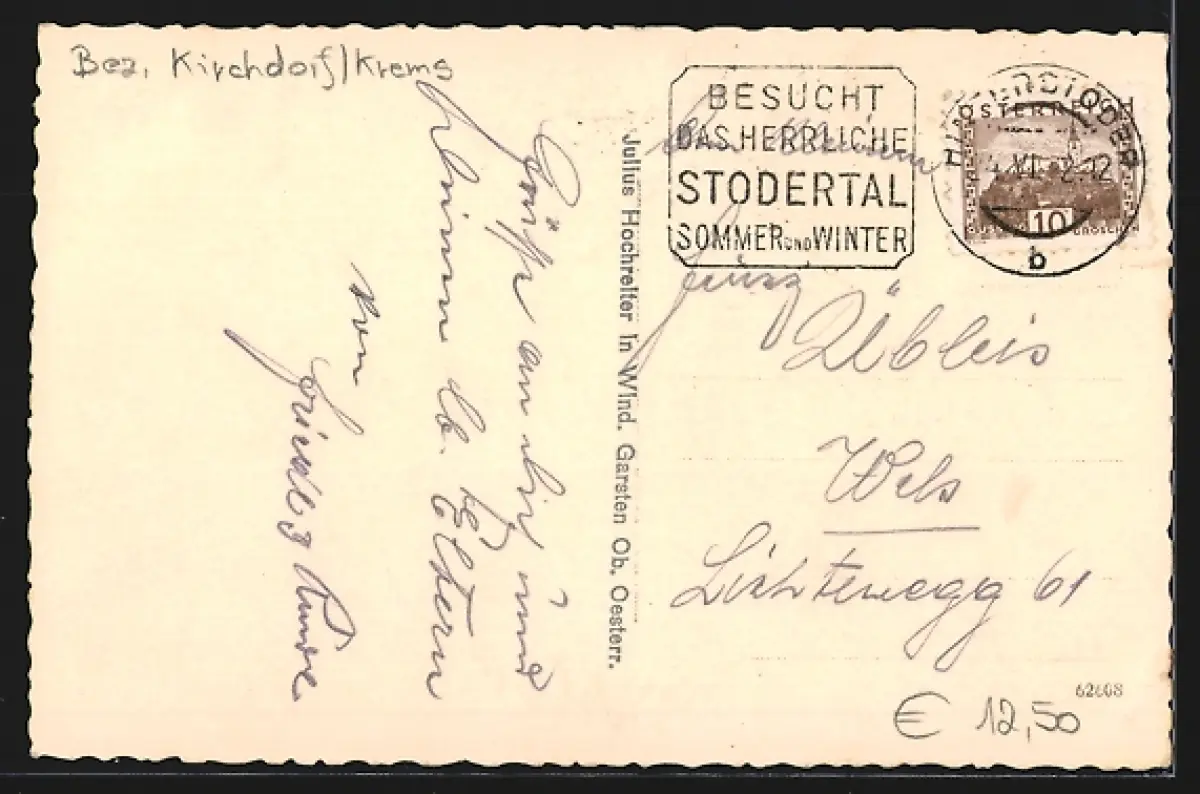 Bez. Kirchdorf/Krems
BESUCHT
DAS HERRLICHE
STODERTAL
SOMMER UND WINTER
HINTERSTODER
ÖSTERREICH
10
GROSCHEN
b
Julius Hochreiter in Wind. Garsten Ob. Oesterr.
Grüße an dich und
deinen lb. Eltern
von
Übleis
Wels
Lichtenegg 61
62608
€ 12,50